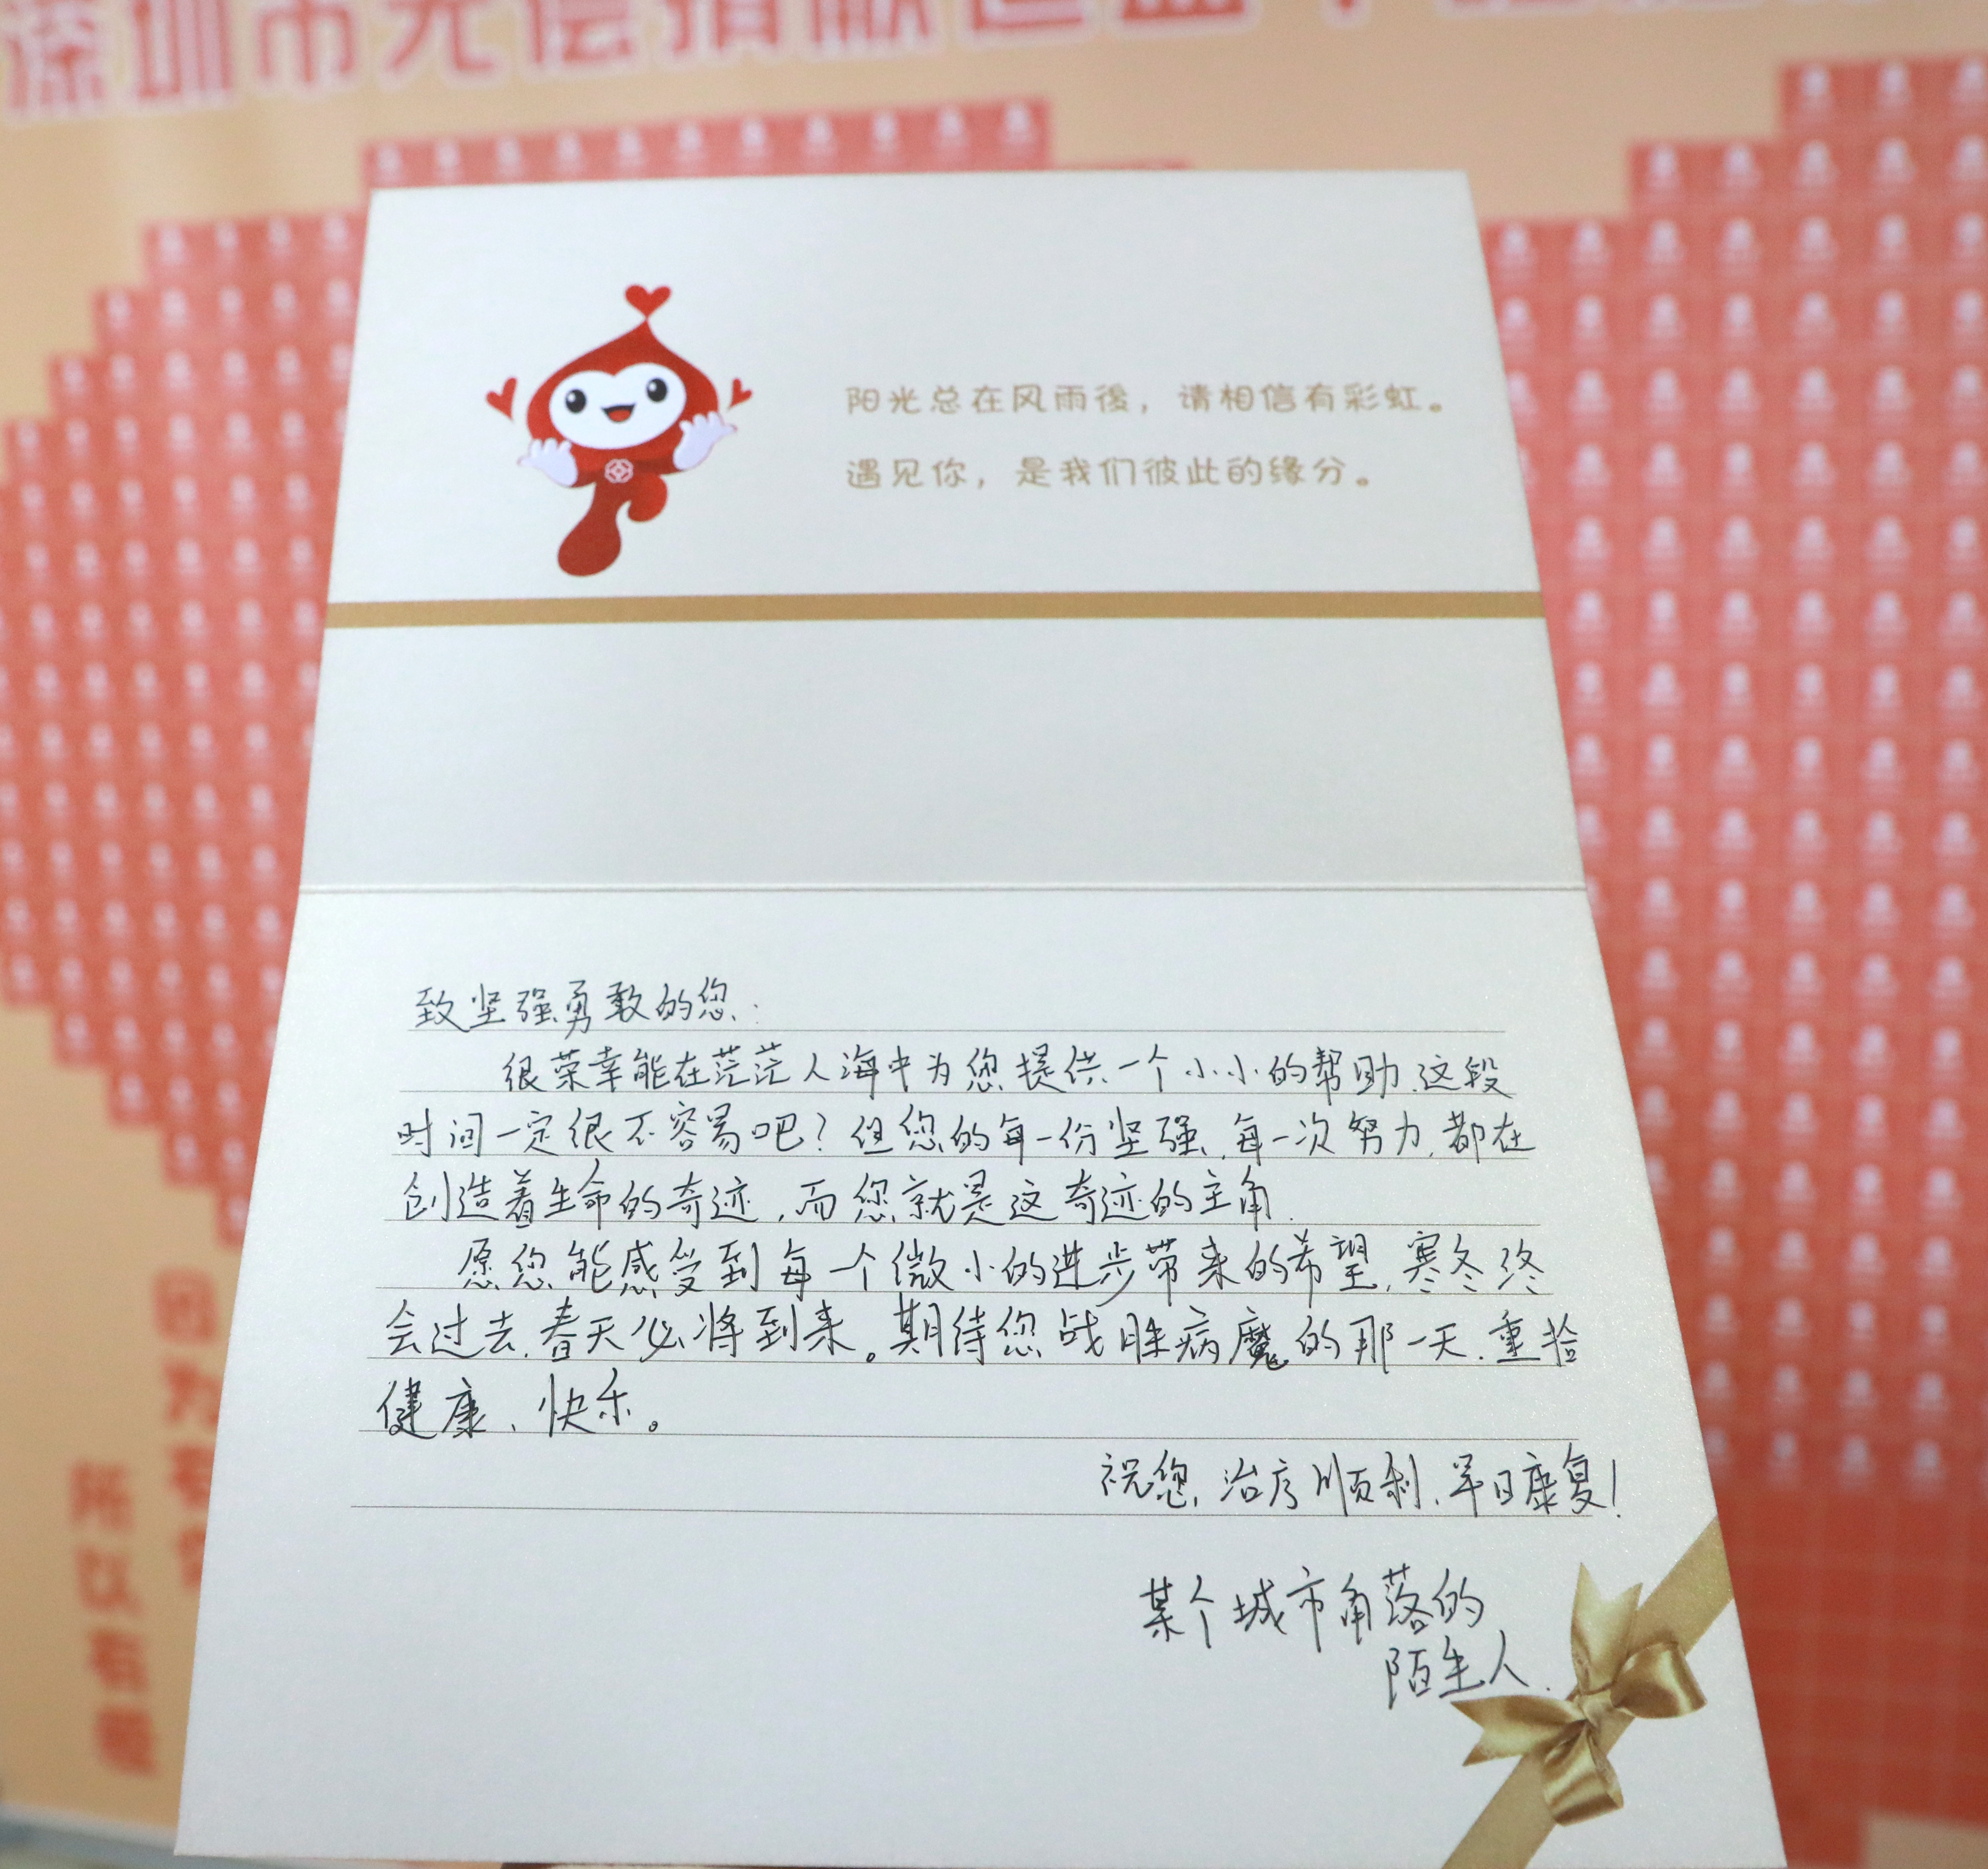 深圳市无偿捐献造血干
阳光总在风雨後，请相信有彩虹。
遇见你，是我们彼此的缘分。
致坚强勇敢的您：
很荣幸能在茫茫人海中为您提供一个小小的帮助.这段
时间一定很不容易吧？但您的每一份坚强,每一次努力,都在
创造着生命的奇迹,而您就是这奇迹的主角.
愿您能感受到每一个微小的进步带来的希望,寒冬终
会过去,春天必将到来。期待您战胜病魔的那一天.重拾
健康、快乐。
祝您,治疗顺利、早日康复！
某个城市角落的
陌生人.
因为有你
所以有爱